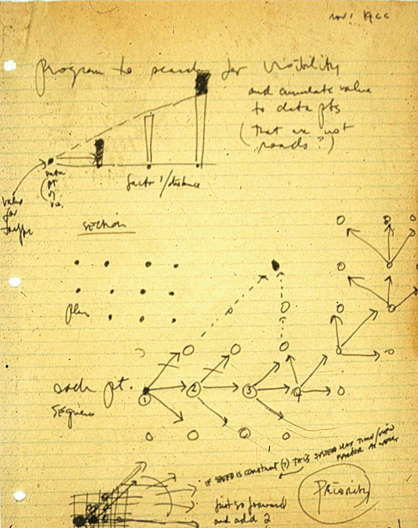 Nov 1966
Program to search for Visibility
and cumulate value
to data pts
(that are not
roads?)
data
pt
value
for
factor 1/distance
Section
Plan
each pt.
Sequence
1 2 3 4
IF SPEED IS CONSTANT (?) THIS SYSTEM
FACTOR AS WELL
Priority
just go forward
and add 2